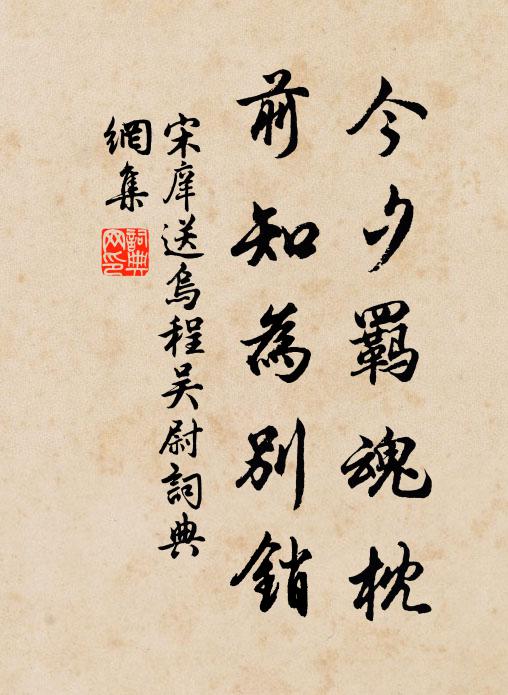 今夕羈魂枕
前知為別銷
宋庠送烏程吴尉詞典
網集
詞典網印